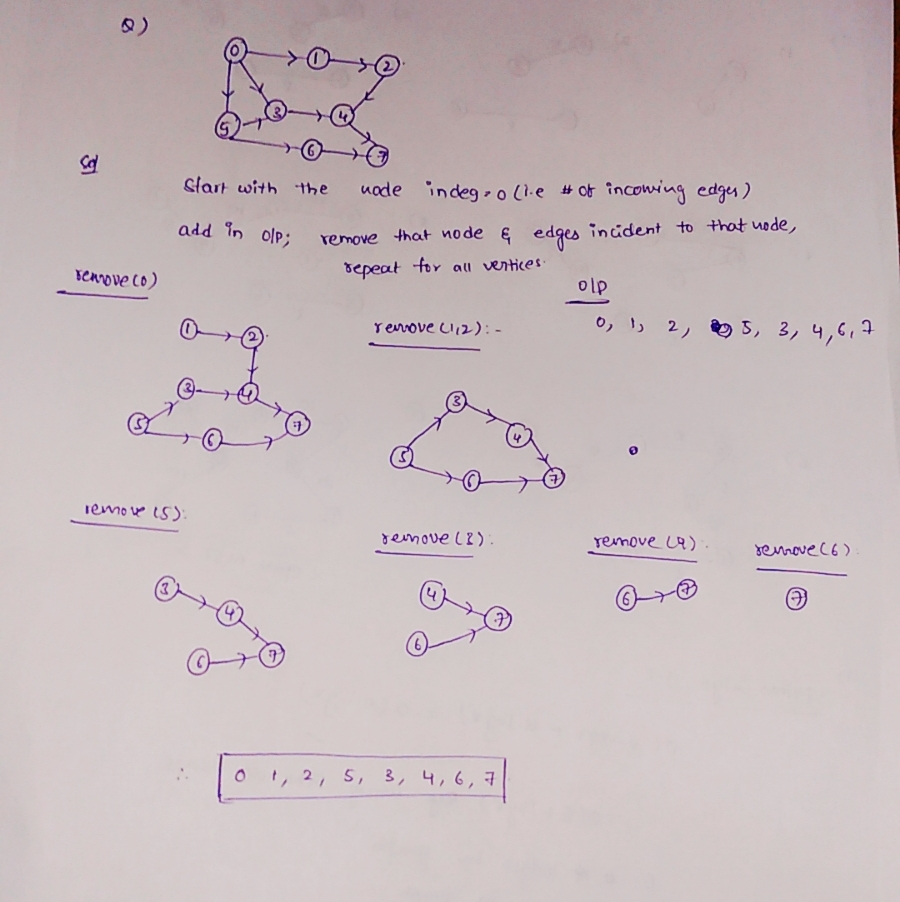 Q)
0 1 2
3 4
5
6 7
Sol
start with the node indeg = 0 (i.e # of incoming edges)
add in o/p; remove that node & edges incident to that node,
repeat for all vertices.
remove(0)
o/p
remove(1,2):-
0, 1, 2, 5, 3, 4, 6, 7
1 2
3 4
5 6 7
3
4
5
6 7
remove(5):
remove(3):
remove(4):
remove(6):
3
4
6 7
4
7
6
6 7
7
∴ 0 1, 2, 5, 3, 4, 6, 7